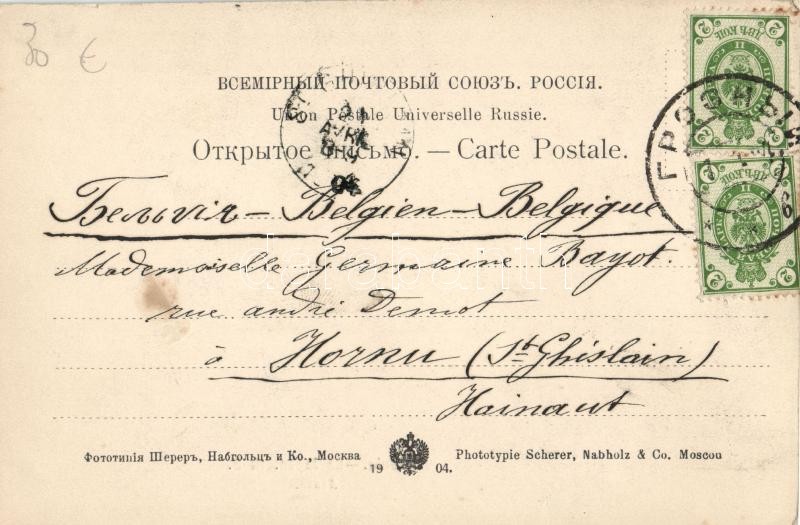 30 €
ВСЕМІРНЫЙ ПОЧТОВЫЙ СОЮЗЪ. РОССІЯ.
Union Postale Universelle Russie.
Открытое письмо. — Carte Postale.
Бельгія – Belgien – Belgique
Mademoiselle Germaine Bayot.
rue andré Demot
à Hornu (St Ghislain)
Hainaut
Фототипія Шереръ, Набгольцъ и Ко., Москва
Phototypie Scherer, Nabholz & Co. Moscou
19 04.
2 ДВѢ КОП. 2
2 ДВѢ КОП. 2